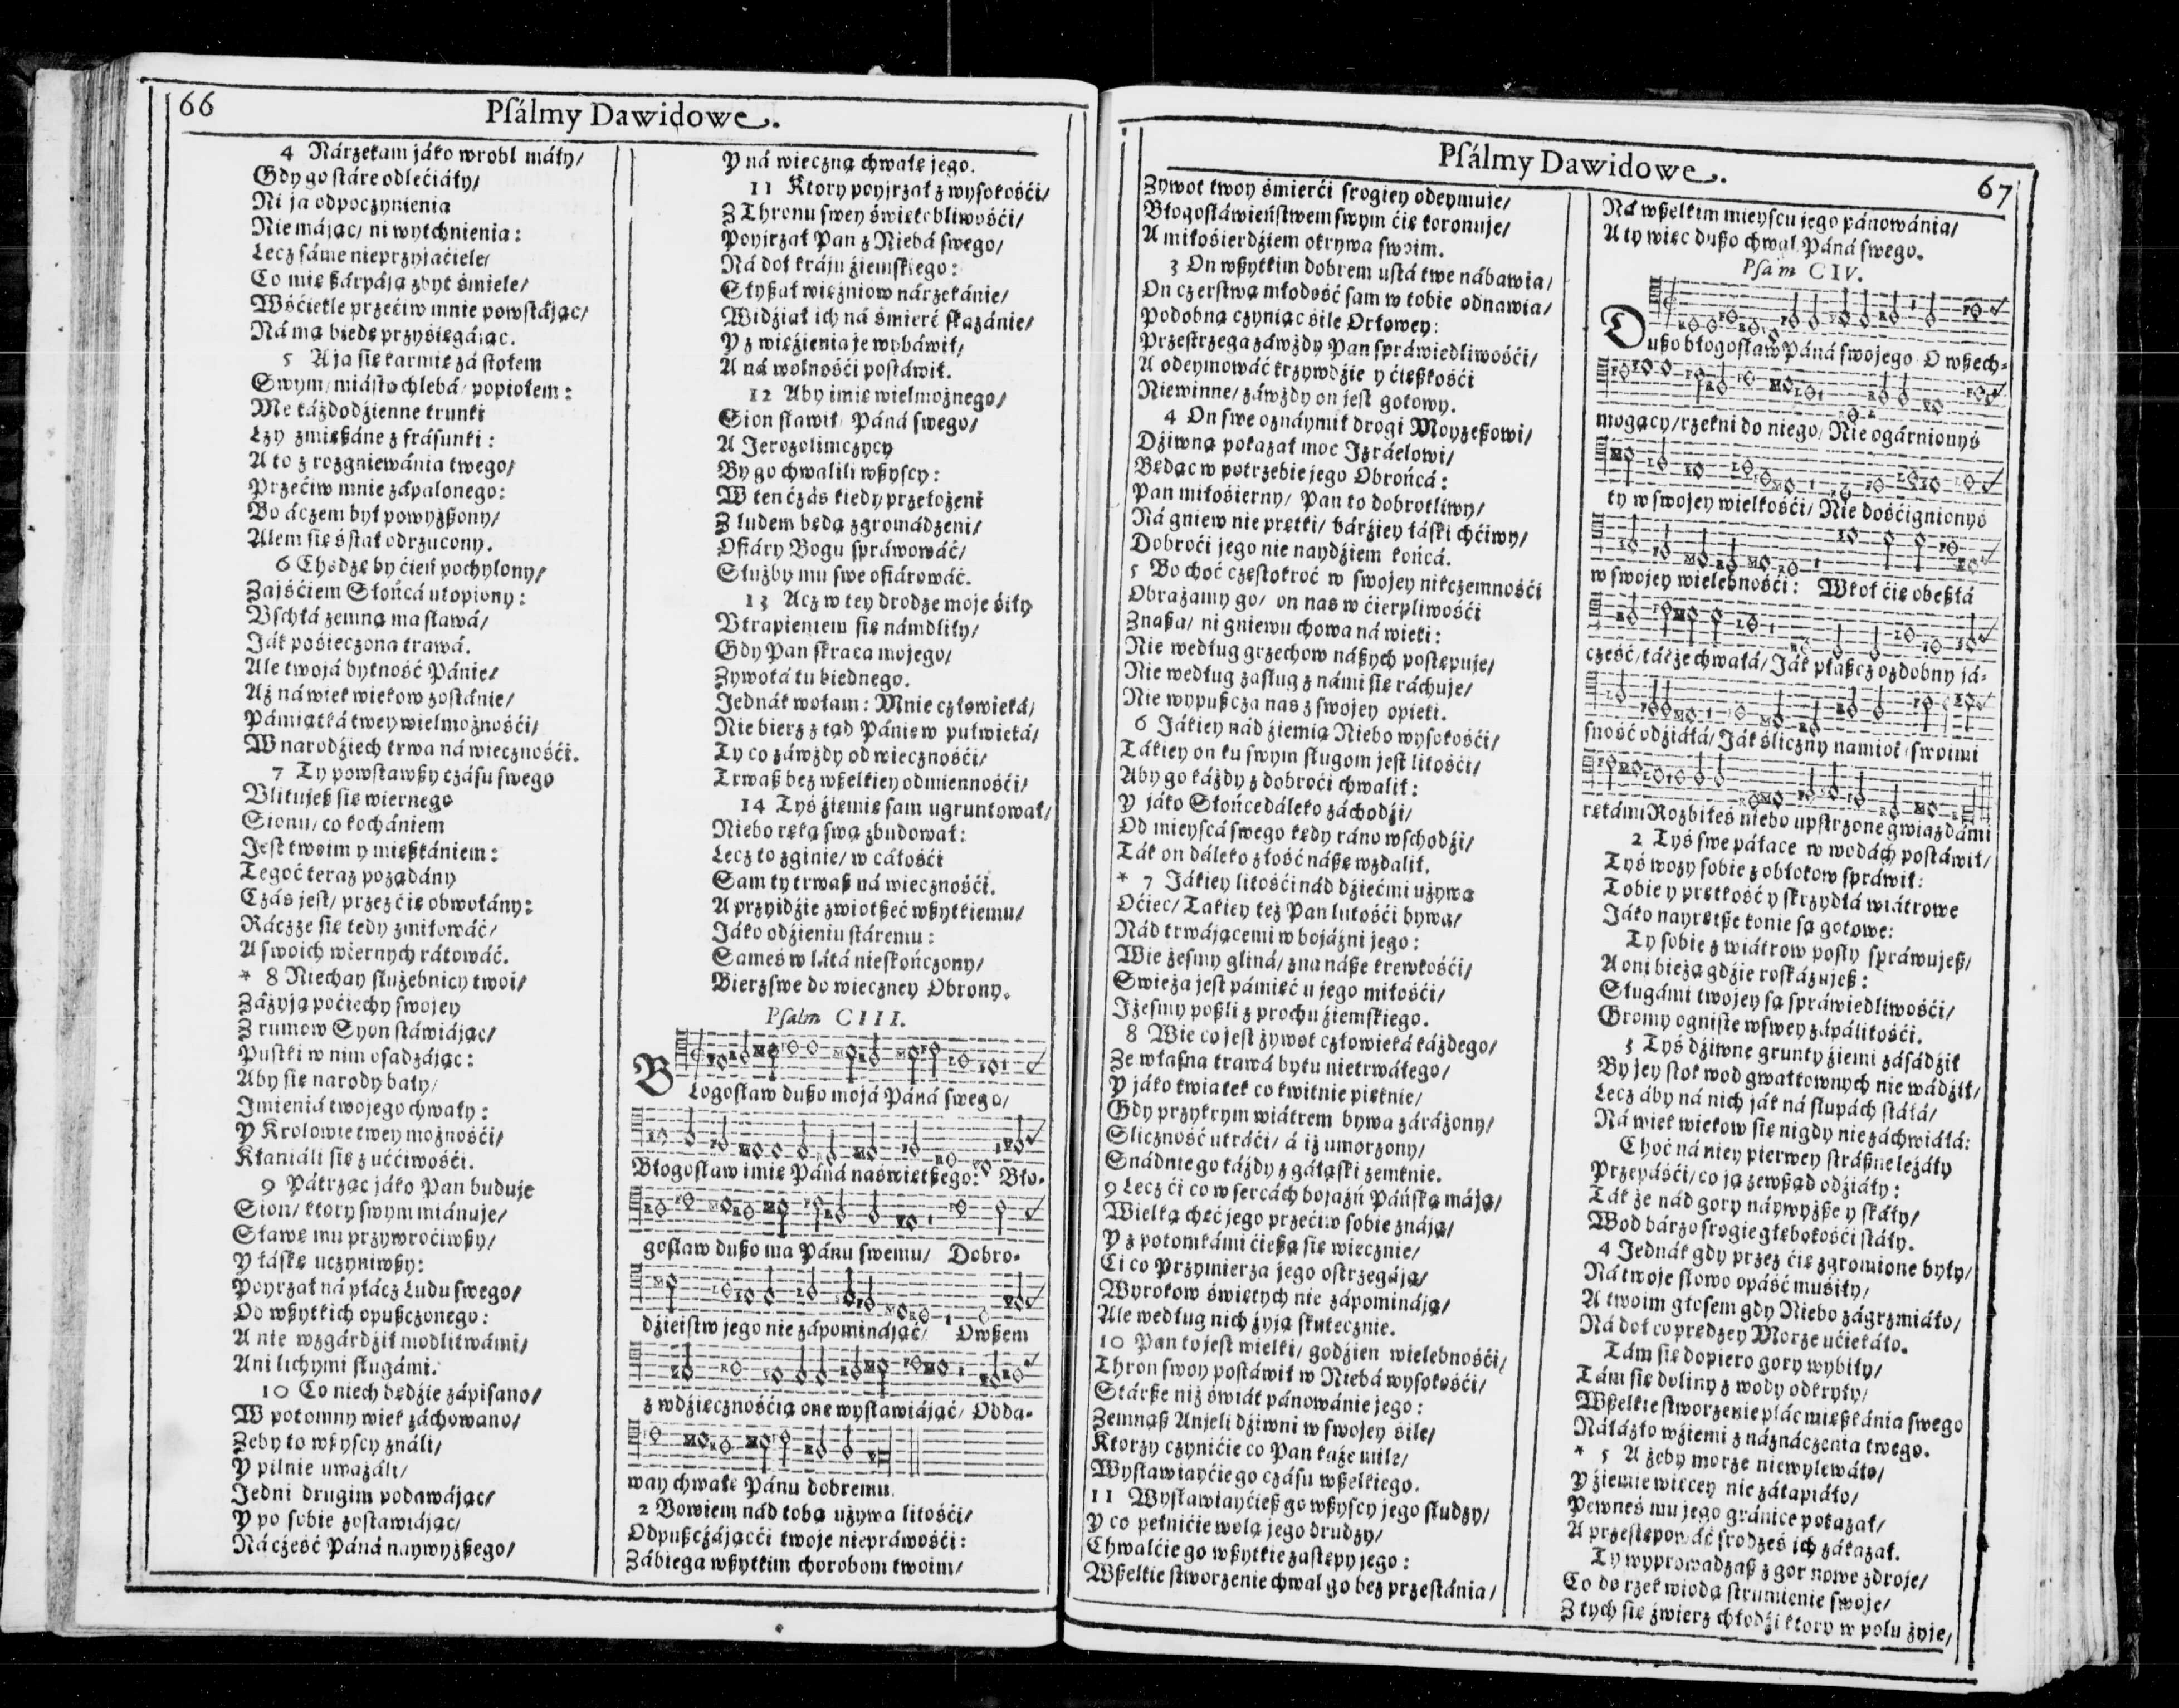 66
Psálmy Dawidowe.
4 Nárzekam jáko wrobl máły/
Gdy go stáre odlećiáły/
Ni ja odpoczynienia
Nie májąc/ ni wytchnienia:
Lecz sáme nieprzyjaćiele/
Co mię ßárpáją zbyt śmiele/
Wśćiekle przećiw mnie powstájąc/
Ná mą biedę przysięgájąc.
5 A ja się karmię zá stołem
Swym/ miásto chlebá/ popiołem:
Me káżdodźienne trunki
Łzy zmießáne z frásunki:
A to z rozgniewánia twego/
Przećiw mnie zápalonego:
Bo áczem był powyżßony/
Alem się sstał odrzucony.
6 Chodzę by ćień pochylony/
Zajśćiem Słońcá utopiony:
Vschłá zemną ma sławá/
Ják pośieczona trawá.
Ale twojá bytność Pánie/
Aż ná wiek wiekow zostánie/
Pámiątká twey wielmożnośći/
W narodźiech trwa ná wiecznośći.
7 Ty powstawßy czásu swego
Vlitujeß się wiernego
Sionu/ co kochániem
Jest twoim y mießkániem:
Tegoć teraz pożądány
Czás jest/ przez ćię obwołány:
Ráczże się tedy zmiłowáć/
A swoich wiernych rátowáć.
* 8 Niechay służebnicy twoi/
Záżyją poćiechy swojey
Z rumow Syon stáwiájąc/
Pustki w nim osadzájąc:
Aby się narody bały/
Jmieniá twojego chwały:
Y Krolowie twey możnośći/
Kłaniáli się z ućciwośći.
9 Pátrząc jáko Pan buduje
Sion/ ktory swym miánuje/
Sławę mu przywroćiwßy/
Y łáskę uczyniwßy:
Poyrzał ná płácz Ludu swego/
Od wßytkich opußczonego:
A nie wzgárdźił modlitwámi/
Ani lichymi sługámi.
10 Co niech będźie zápisano/
W potomny wiek záchowano/
Zeby to wßyscy ználi/
Y pilnie uważáli/
Jedni drugim podawájąc/
Y po sobie zostawiájąc/
Ná cześć Páná naywyżßego/
Y ná wieczną chwałę jego.
11 Ktory poyjrzał z wysokośći/
Z Thronu swey świętobliwośći/
Poyjrzał Pan z Niebá swego/
Ná doł kráju źiemskiego:
Słyßał więźniow nárzekánie/
Widźiał ich ná śmierć skazánie/
Y z więźienia je wybáwił/
A ná wolnośći postáwił.
12 Aby imię wielmożnego/
Sion sławił/ Páná swego/
A Jerozolimczycy
By go chwalili wßyscy:
W ten czás kiedy przełożeni
Z ludem będą zgromádzeni/
Ofiáry Bogu spráwowáć/
Służby mu swe ofiárowáć.
13 Acz w tey drodze moje śiły
Vtrapieniem się námdliły/
Gdy Pan skraca mojego/
Zywotá tu biednego.
Jednák wołam: Mnie człowieká/
Nie bierz z tąd Pánie w pułwieká/
Ty co záwżdy od wiecznośći/
Trwaß bez wßelkiey odmiennośći/
14 Tyś źiemię sam ugruntował/
Niebo ręką swą zbudował:
Lecz to zginie/ w cáłośći
Sam ty trwaß ná wiecznośći.
A przyidźie zwiotßeć wßytkiemu/
Jáko odźieniu stáremu:
Sameś w látá nieskończony/
Bierzswe do wieczney Obrony.
Psalm CIII.
BLogosław dußo mojá Páná swego/
Błogosław imię Páná naświętßego: Bło-
gosław dußo ma Pánu swemu/ Dobro-
dźieistw jego nie zápominájąć/ Owßem
z wdźięcznośćią one wysławiájąć/ Odda-
way chwałę Pánu dobremu.
2 Bowiem nád tobą używa litośći/
Odpußczájącći twoje niepráwośći:
Zábiega wßytkim chorobom twoim/
Psálmy Dawidowe.
67
Zywot twoy śmierći srogiey odeymuje/
Błogosłáwieństwem swym ćię koronuje/
A miłośierdźiem okrywa swoim.
3 On wßytkim dobrem ustá twe nábawia/
On czerstwą młodość sam w tobie odnawia/
Podobną czyniąc śile Orłowey:
Przestrzega záwżdy Pan spráwiedliwośći/
A odeymowáć krzywdźie y ćięßkośći
Niewinne/ záwżdy on jest gotowy.
4 On swe oznáymił drogi Moyzeßowi/
Dźiwną pokazał moc Jzráelowi/
Będąc w potrzebie jego Obrońcá:
Pan miłośierny/ Pan to dobrotliwy/
Ná gniew nie prętki/ bárźiey łáski chćiwy/
Dobroći jego nie naydźiem końcá.
5 Bo choć częstokroć w swojey nikczemnośći
Obrażamy go/ on nas w ćierpliwośći
Znaßa/ ni gniewu chowa ná wieki:
Nie według grzechow náßych postępuje/
Nie według zasług z námi się ráchuje/
Nie wypußcza nas z swojey opieki.
6 Jákiey nád źiemią Niebo wysokośći/
Tákiey on ku swym sługom jest litośći/
Aby go káżdy z dobroći chwalił:
Y jáko Słońce dáleko záchodźi/
Od mieyscá swego kędy ráno wschodźi/
Ták on dáleko złość náßę wzdalił.
* 7 Jákiey litośći nád dźiećmi używa
Oćiec/ Takiey też Pan lutośći bywa/
Nád trwájącemi w bojáźni jego:
Wie żesmy gliná/ zna náße krewkośći/
Swieża jest pámięć u jego miłośći/
Jżesmy poßli z prochu źiemskiego.
8 Wie co jest żywot człowieká káżdego/
Ze własna trawá bytu nietrwáłego/
Y jáko kwiatek co kwitnie pięknie/
Gdy przykrym wiátrem bywa zárażony/
Sliczność utráći/ á iż umorzony/
Snádnie go káżdy z gáłąski zemknie.
9 Lecz ći co w sercách bojaźń Páńską máją/
Wielką chęć jego przećiw sobie znáją/
Y z potomkámi ćießą się wiecznie/
Ci co Przymierza jego ostrzegáją/
Wyrokow świętych nie zápomináją/
Ale według nich żyją skutecznie.
10 Pan to jest wielki/ godźien wielebnośći/
Thron swoy postáwił w Niebá wysokośći/
Stárße niż świát pánowánie jego:
Zemnąß Anjeli dźiwni w swojey śile/
Ktorzy czynićie co Pan każe mile/
Wysławiayćie go czásu wßelkiego.
11 Wysławiayćieß go wßyscy jego słudzy/
Y co pełnićie wolą jego drudzy/
Chwalćie go wßytkie zastępy jego:
Wßelkie stworzenie chwal go bez przestánia/
Ná wßelkim mieyscu jego pánowánia/
A ty więc dußo chwal Páná swego.
Psalm CIV.
Dußo błogosław Páná swojego O wßech-
mogący/ rzekni do niego/ Nie ogárnionyś
ty w swojey wielkośći/ Nie dośćignionyś
w swojey wielebnośći: Wkoł ćię obeßłá
cześć/ tákże chwałá/ Ják płaßcz ozdobny já-
sność odźiáłá/ Ják śliczny namiot swoimi
rękámi Rozbiłeś niebo upstrzone gwiazdámi
2 Tyś swe páłace w wodách postáwił/
Tyś wozy sobie z obłokow spráwił:
Tobie y prętkość y skrzydłá wiátrowe
Jáko nayrętße konie są gotowe:
Ty sobie z wiátrow posły spráwujeß/
A oni bieżą gdźie roskázujeß:
Sługámi twojey są spráwiedliwośći/
Gromy ogniste w swey zápálitośći.
3 Tyś dźiwne grunty źiemi zásádźił
By jey stok wod gwałtownych nie wádźił/
Lecz áby ná nich ják ná słupách stáłá/
Ná wiek wiekow się nigdy nie záchwiáłá:
Choć ná niey pierwey stráßne leżáły
Przepáśći/ co ją zewßąd odźiáły:
Ták że nád gory naywyżße y skáły/
Wod bárzo srogie głębokośći stáły.
4 Jednák gdy przez ćię zgromione były/
Ná twoje słowo opáść muśiły/
A twoim głosem gdy Niebo zágrzmiáło/
Ná doł co prędzey Morze ućiekáło.
Tám się dopiero gory wybiły/
Tám się doliny z wody odkryły/
Wßelkie stworzenie plác mießkánia swego
Náłázło w źiemi z náznáczenia twego.
* 5 A żeby morze niewylewáło/
Y źiemie więcey nie zátapiáło/
Pewneś mu jego gránice pokazał/
A przestępowáć srodześ ich zákazał.
Ty wyprowadzaß z gor nowe zdroje/
Co do rzek wiodą strumienie swoje/
Z tych się zwierz chłodźi ktory w polu żyje/